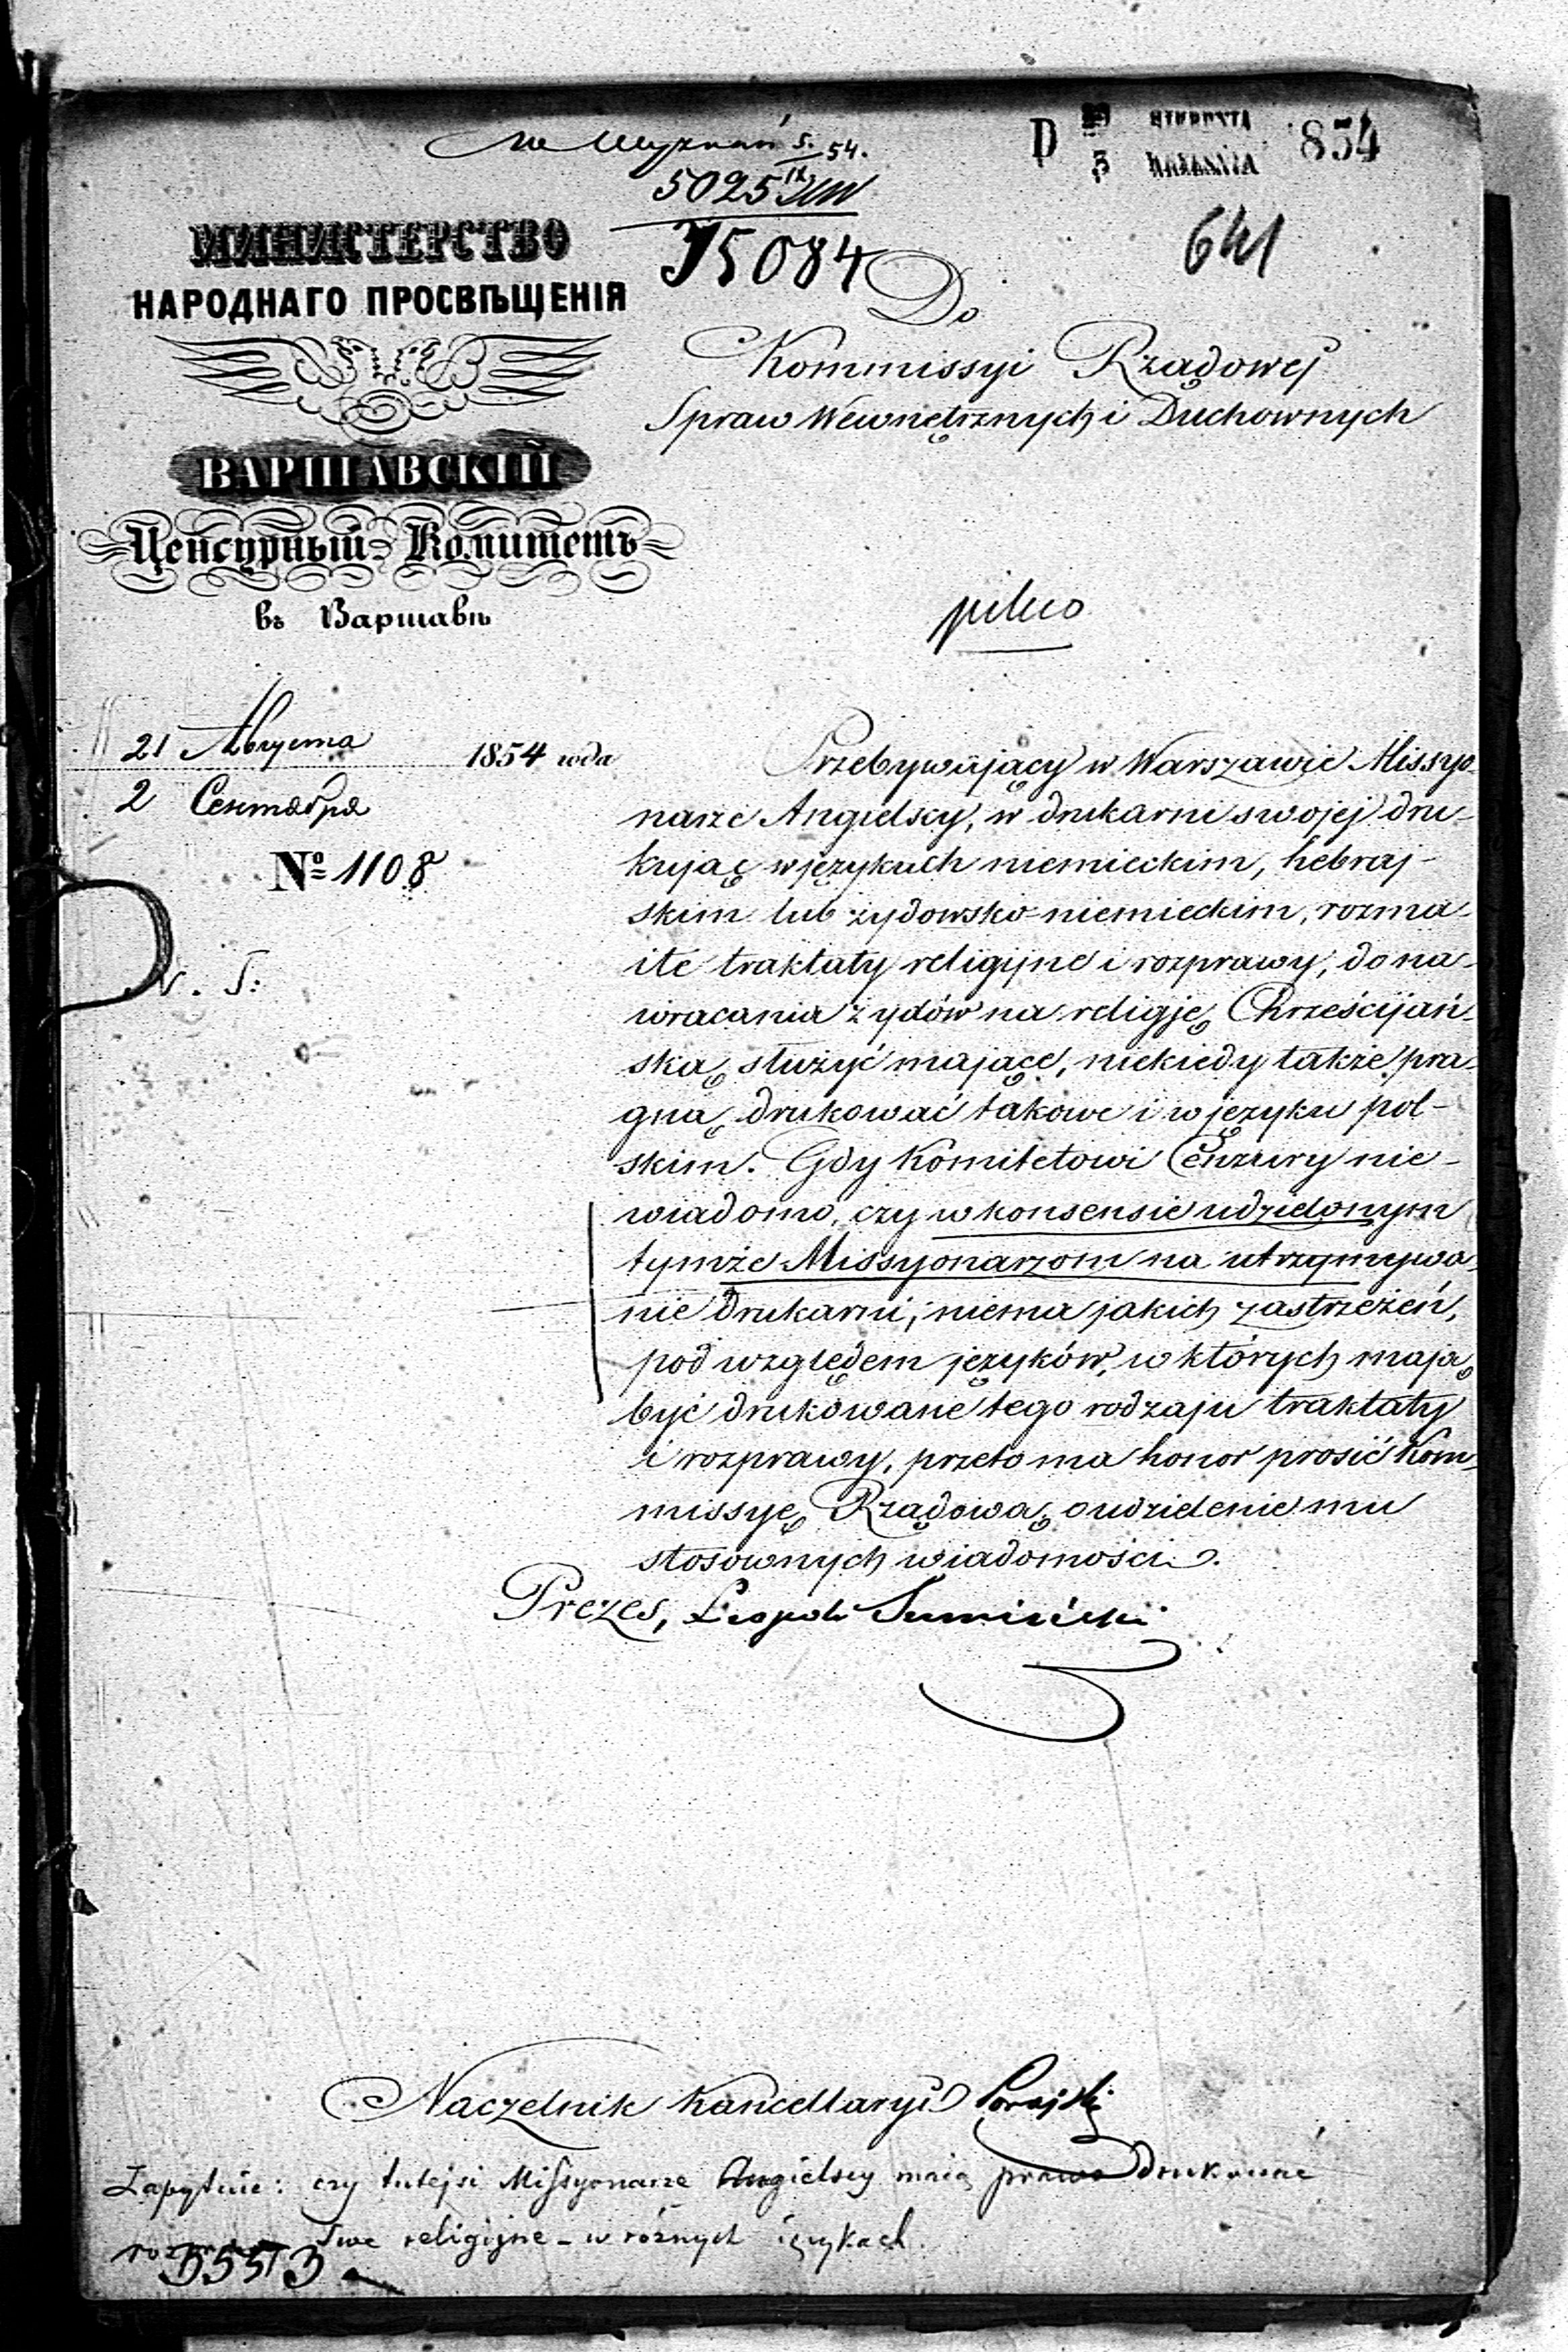 5. 54.
IX.
5025
D 3 854
641
15084
МИНИСТЕРСТВО
НАРОДНАГО ПРОСВѢЩЕНІЯ
ВАРШАВСКІЙ
Ценсурный Комитетъ
въ Варшавѣ
Do
Kommissyi Rządowej
Spraw Wewnętrznych i Duchownych
pilno
21 Августа
1854 года
2 Сентября
№ 1108
Przebywający w Warszawie Missyo-
narze Angielscy, w drukarni swojej dru-
kując w językach niemieckim, hebraj-
skim lub żydowsko-niemieckim, rozma-
ite traktaty religijne i rozprawy, do na-
wracania żydów na religję Chrześcijań-
ską służyć mające, niekiedy także pra-
gną drukować takowe i w języku pol-
skim. Gdy Komitetowi Cenzury nie-
wiadomo, czy w konsensie udzielonym
tymże Missyonarzom na utrzymywa-
nie drukarni, niema jakich zastrzeżeń,
pod względem języków, w których mają
być drukowane tego rodzaju traktaty
i rozprawy, przeto ma honor prosić Kom-
missyę Rządową o udzielenie mu
stosownych wiadomości.
Prezes,
Naczelnik Kancellaryi
Zapytuie: czy tutejsi Missyonarze Angielscy maią prawo drukować
swe religijne - w różnych ięzykach.